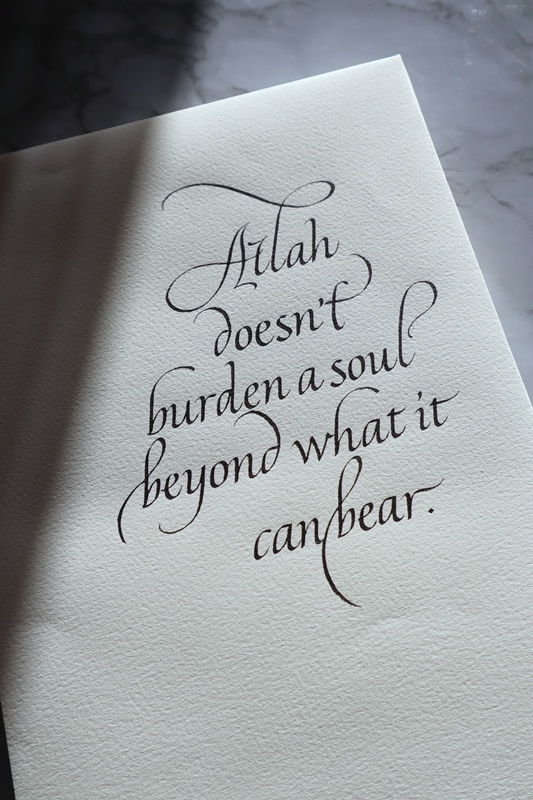 Allah
doesn't
burden a soul
beyond what it
can bear.